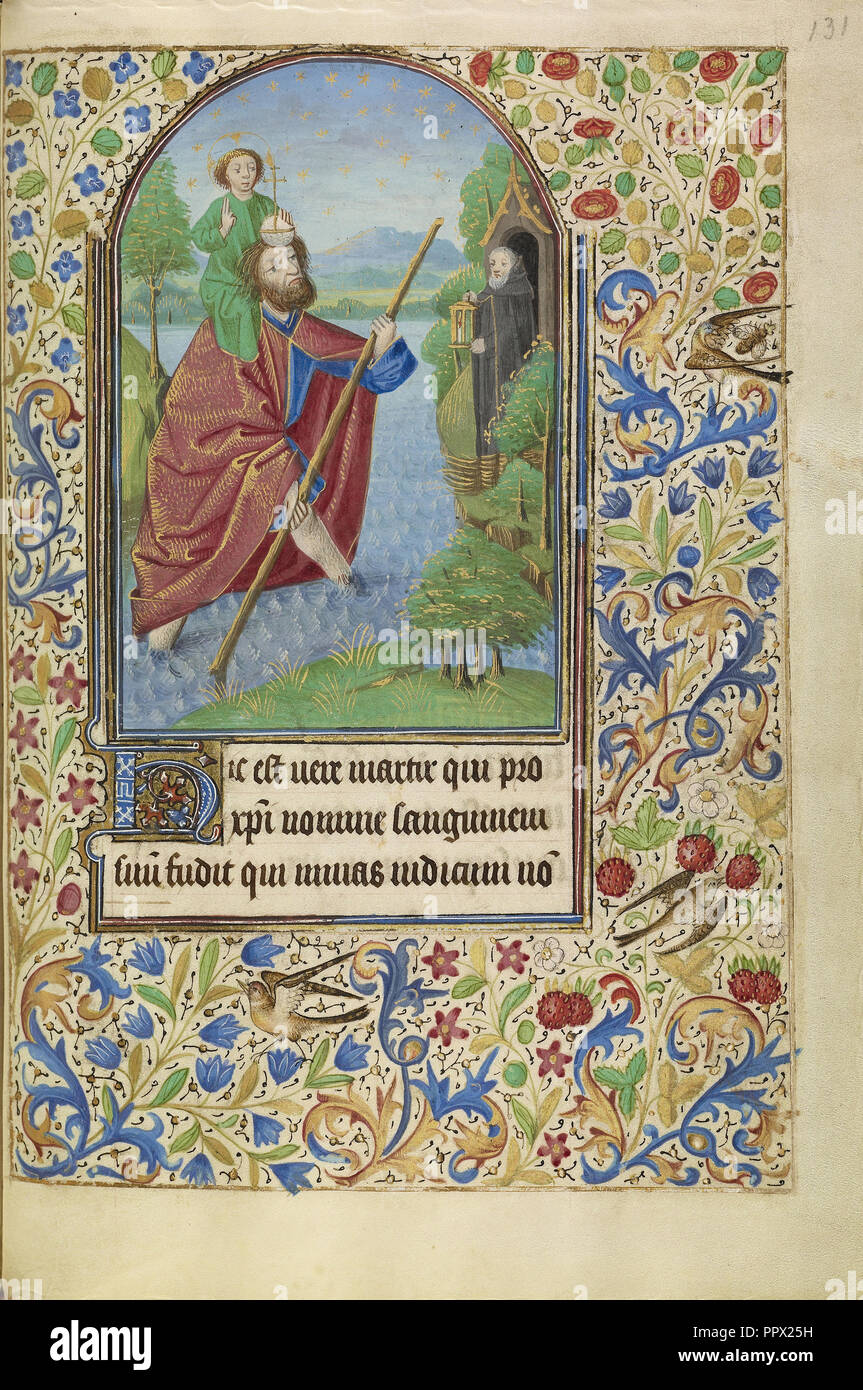 131
Hic est vere martir qui pro
xp̄i nomine sanguinem
suū fudit qui minas iudicum nō
alamy
Image ID: PPX25H
www.alamy.com